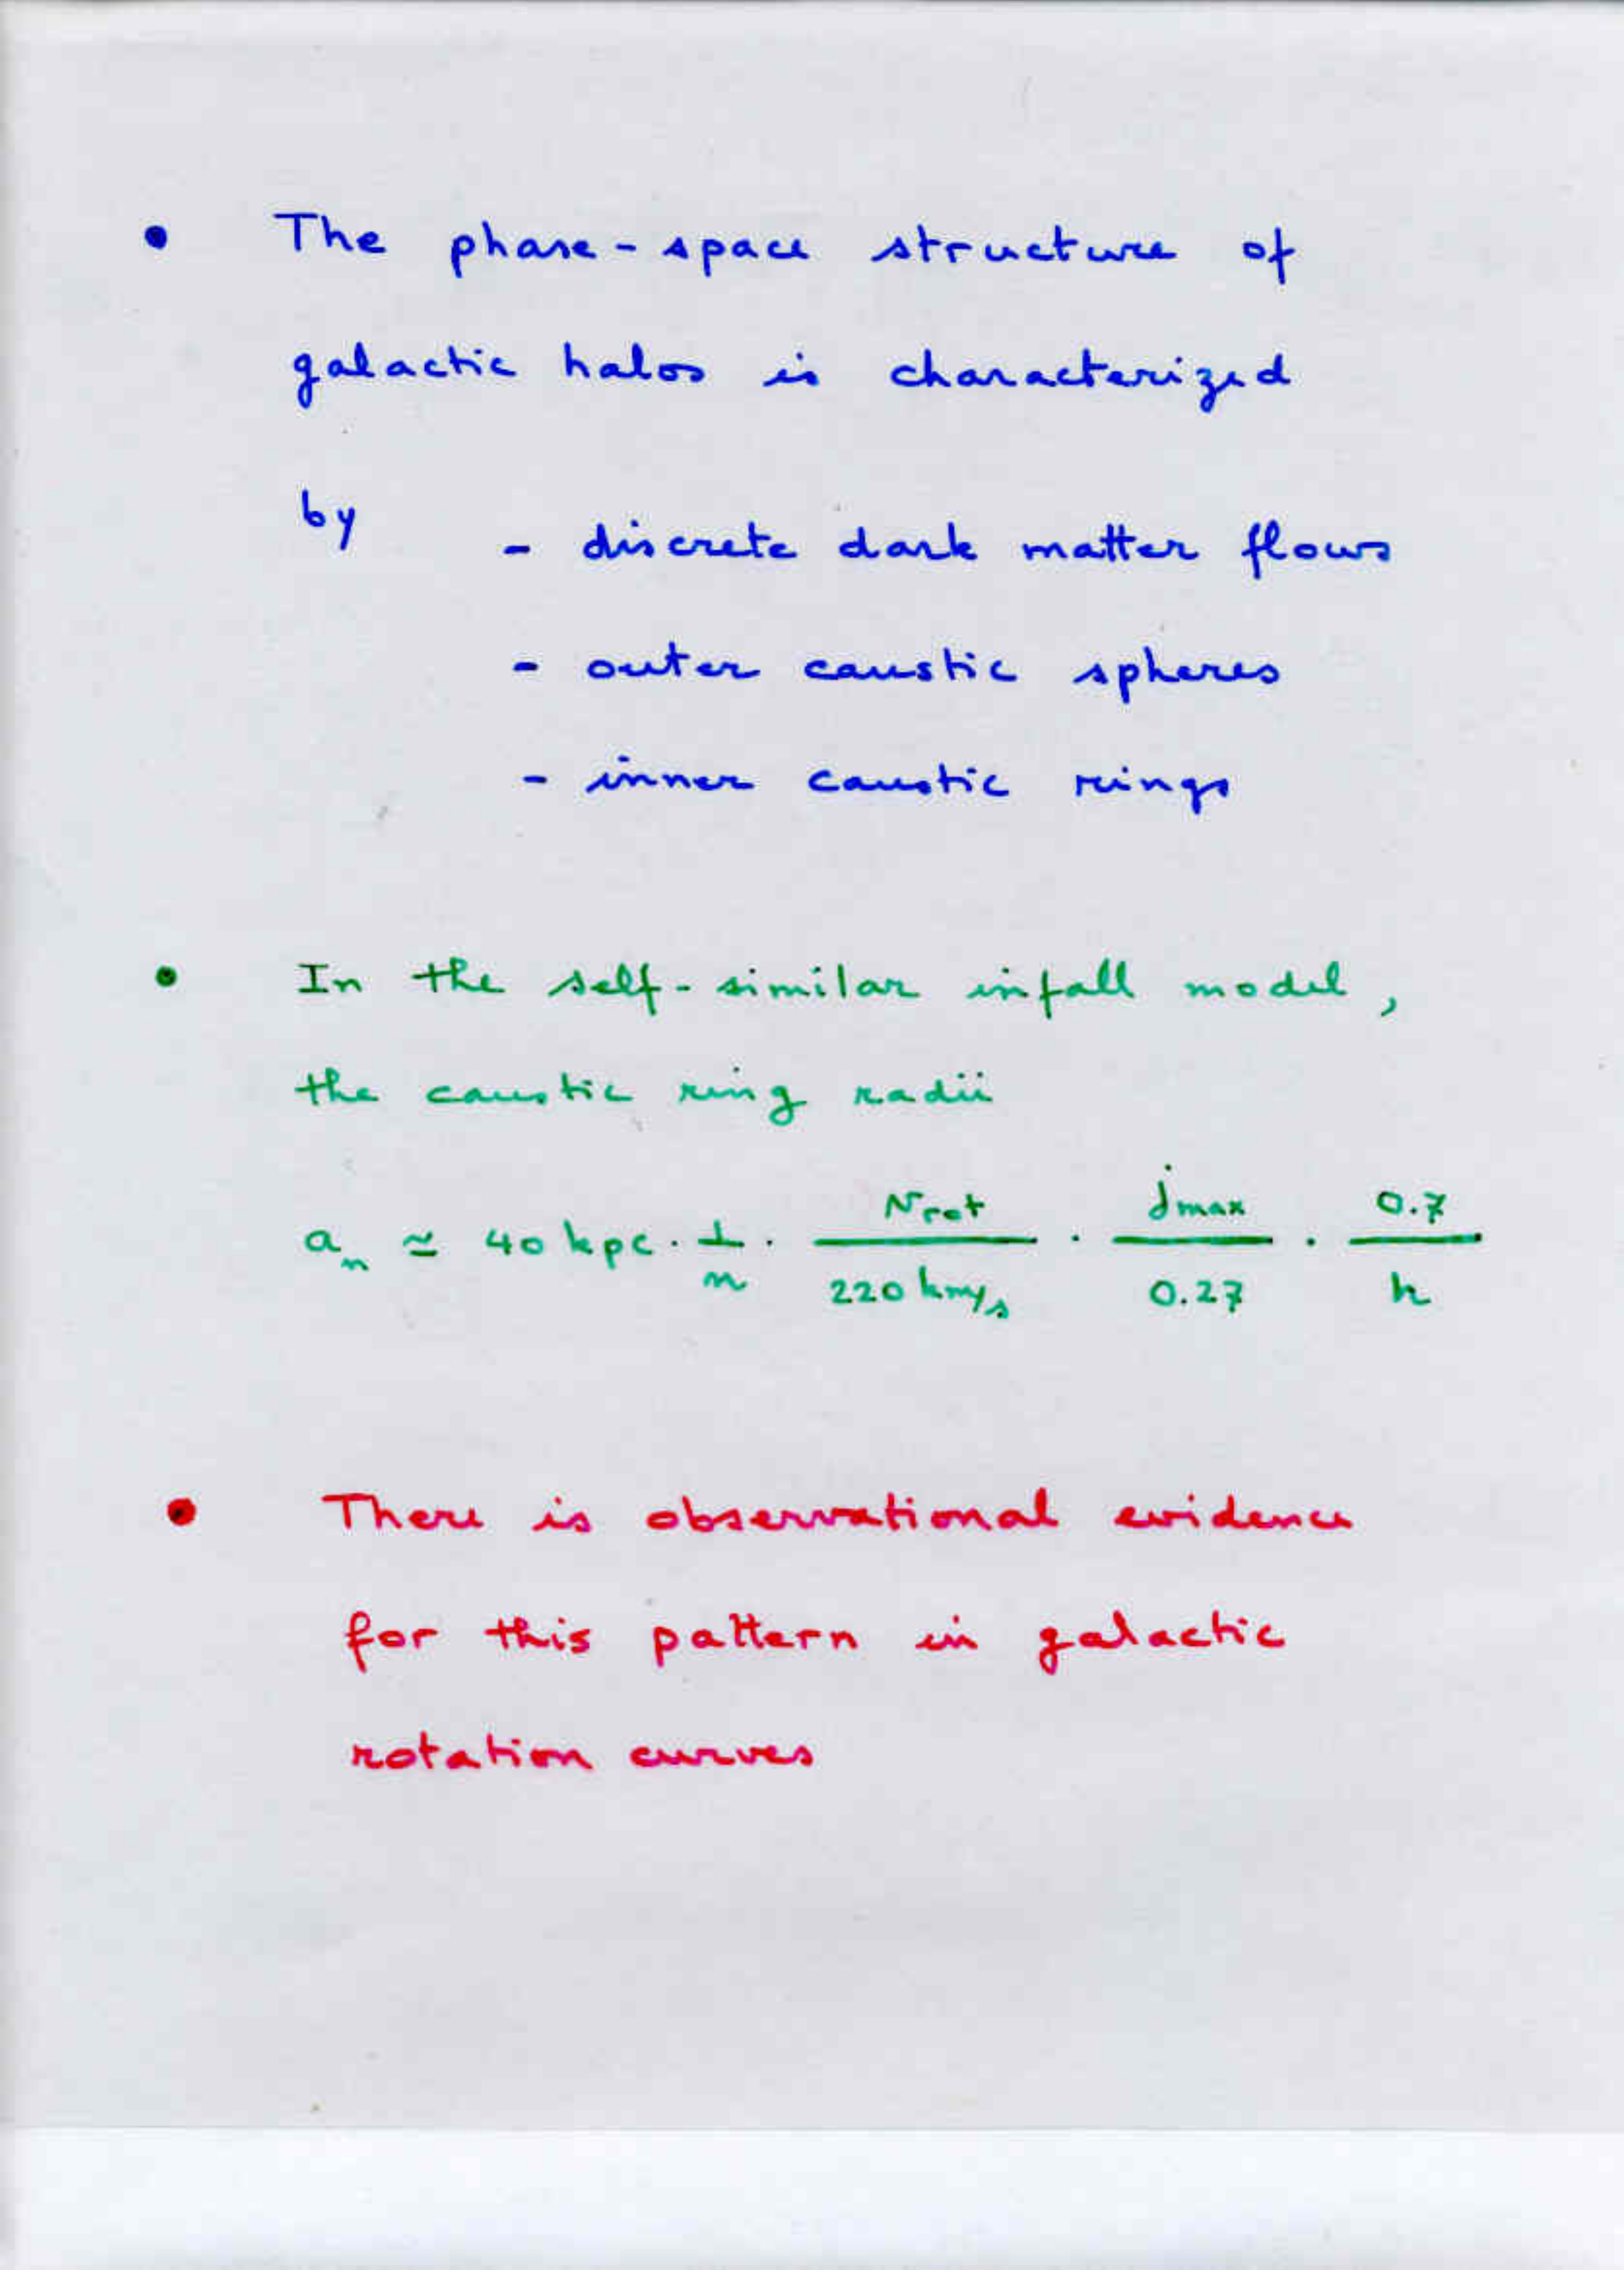 • The phase-space structure of
galactic halos is characterized
by - discrete dark matter flows
- outer caustic spheres
- inner caustic rings
• In the self-similar infall model,
the caustic ring radii
a_n ≃ 40 kpc · 1/n · v_rot / 220 km/s · j_max / 0.27 · 0.7 / h
• There is observational evidence
for this pattern in galactic
rotation curves